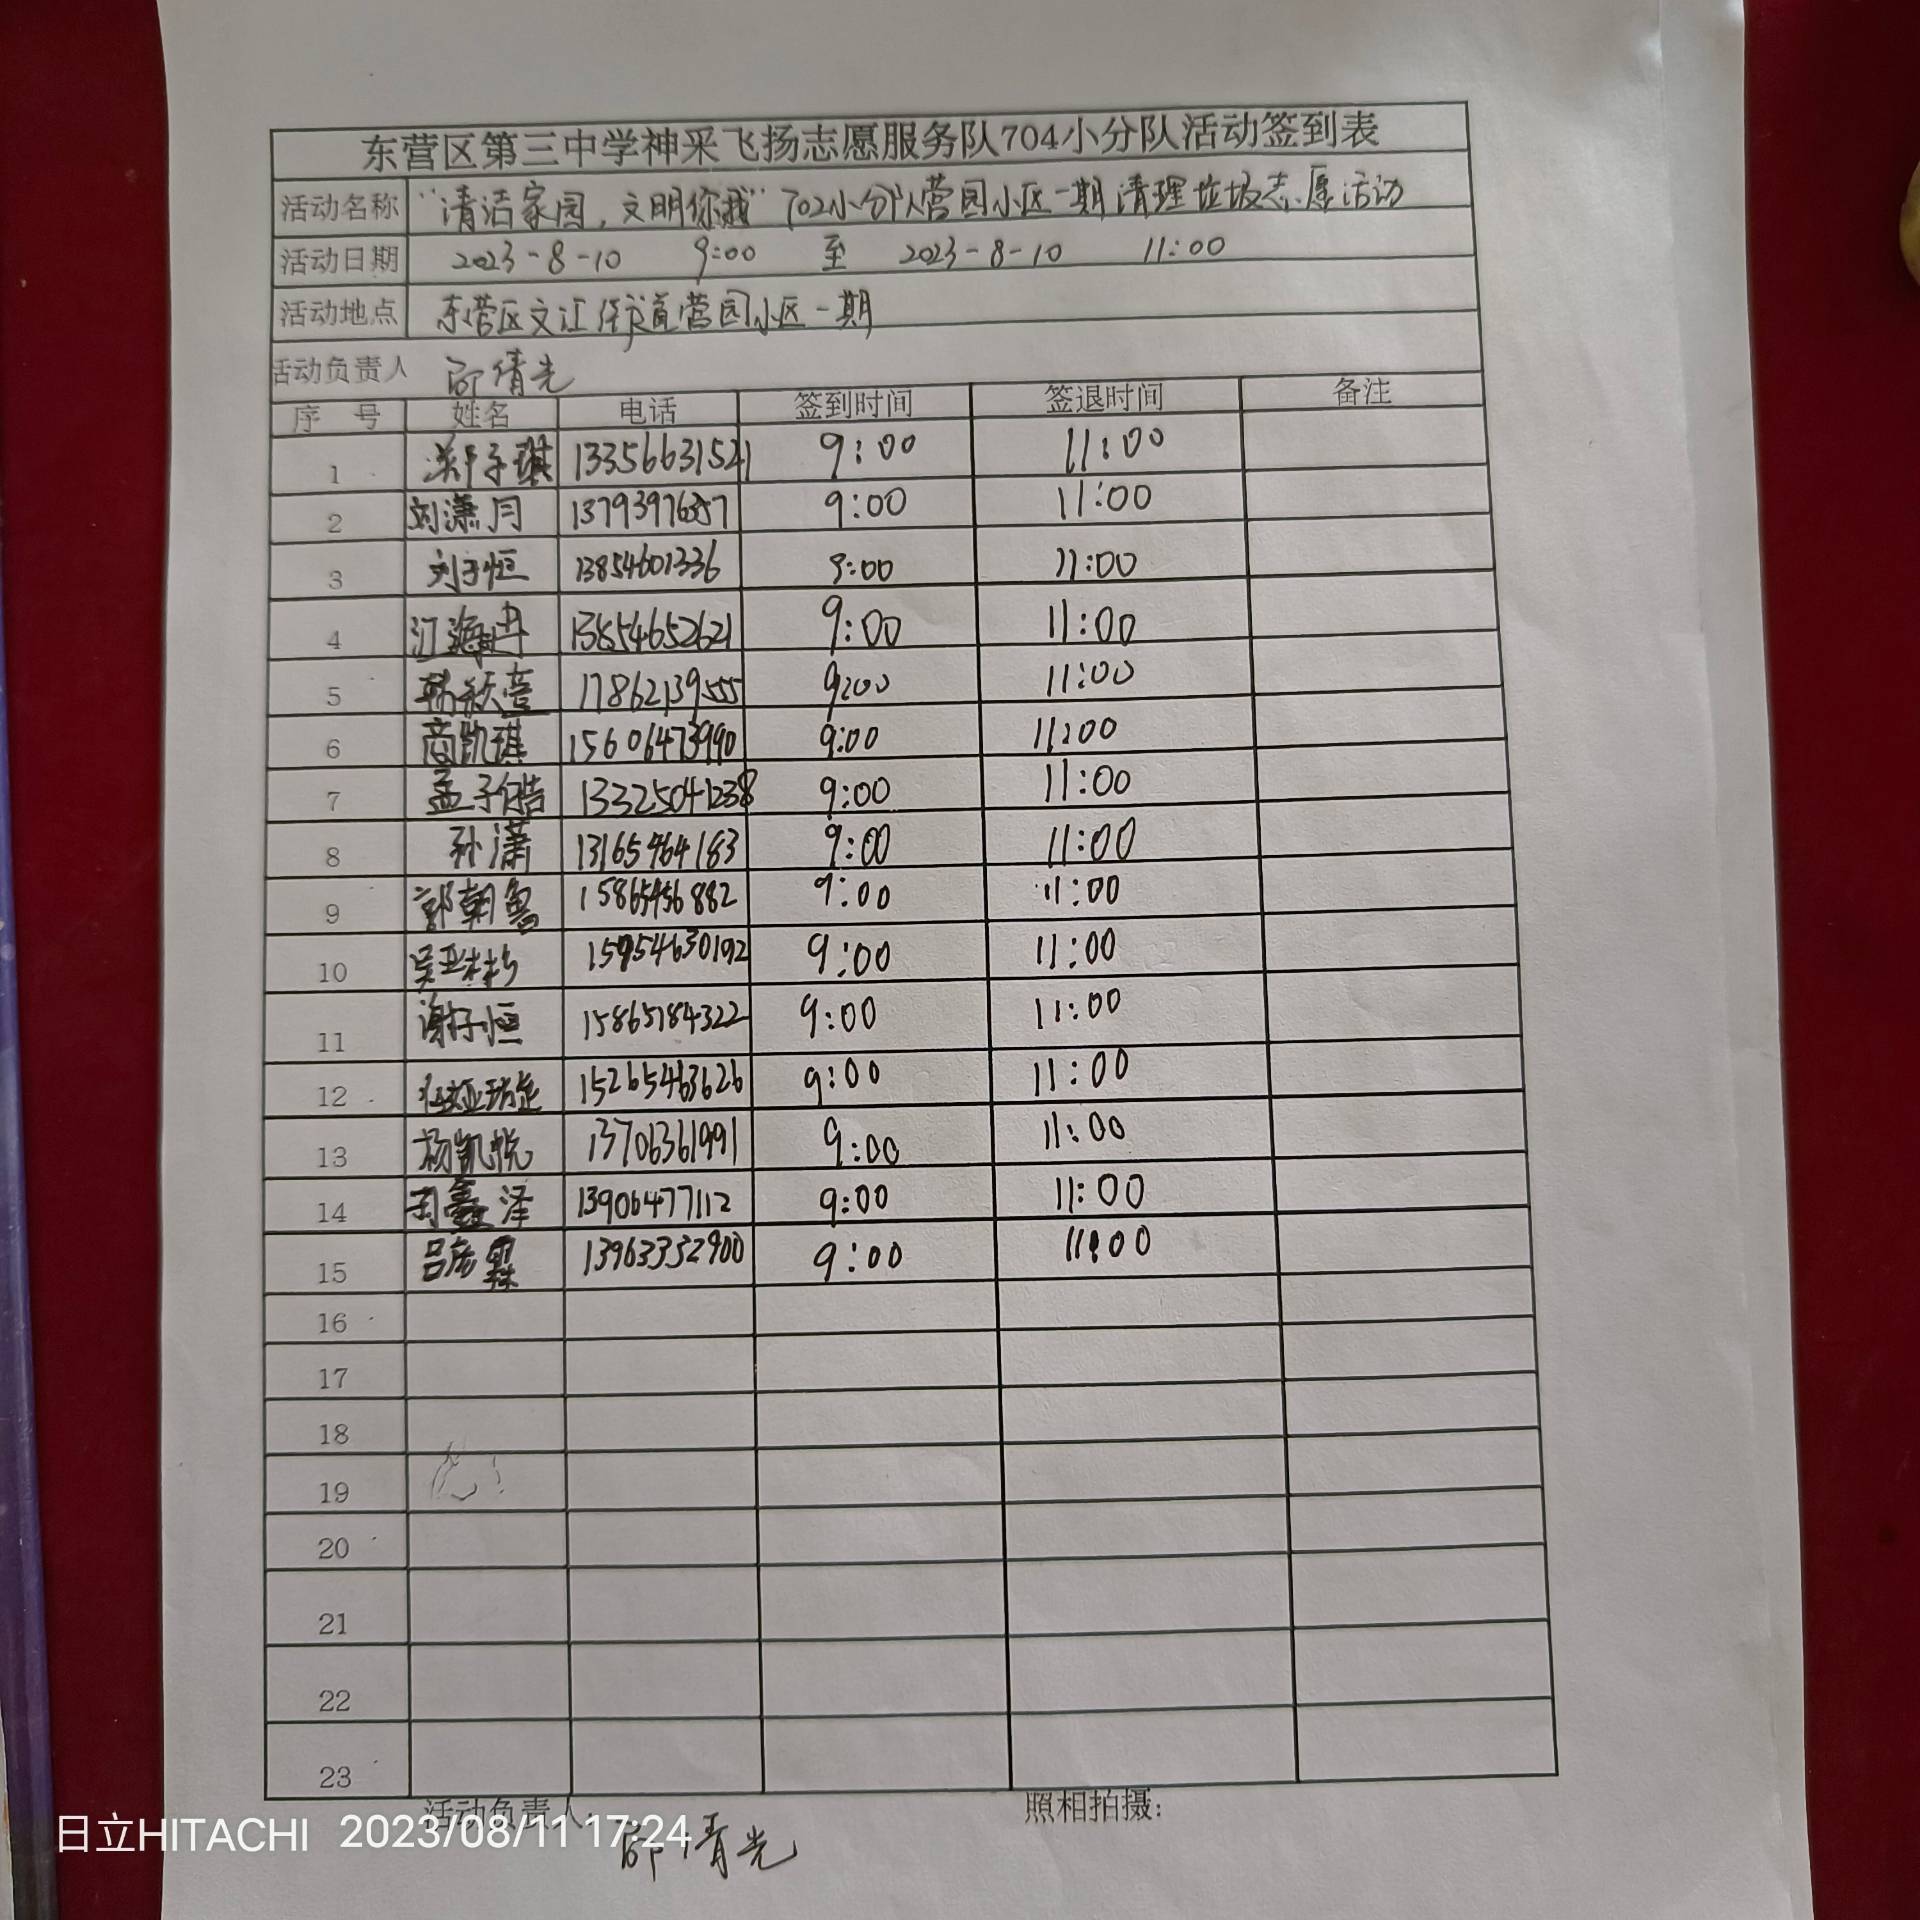 东营区第三中学神采飞扬志愿服务队704小分队活动签到表
活动名称 “清洁家园，文明你我”702小分队营园小区一期清理垃圾志愿活动
活动日期 2023-8-10 9:00 至 2023-8-10 11:00
活动地点 东营区文汇街道营园小区一期
活动负责人 倩光
序 号 姓名 电话 签到时间 签退时间 备注
1 子琪 13356631521 9:00 11:00
2 刘潇月 9:00 11:00
3 刘子恒 13854601336 9:00 11:00
4 江海冉 13854652621 9:00 11:00
5 17862139555 9:00 11:00
6 商凯琪 15606473990 9:00 11:00
7 孟子皓 13325041238 9:00 11:00
8 孙潇 13165464183 9:00 11:00
9 郭朝鲁 15865456882 9:00 11:00
10 吴亚彬 15954630192 9:00 11:00
11 谢子恒 15865784322 9:00 11:00
12 15265463626 9:00 11:00
13 杨凯悦 13706361991 9:00 11:00
14 鑫泽 13906477112 9:00 11:00
15 吕彦霖 13963352900 9:00 11:00
16
17
18
19
20
21
22
23
活动负责人: 照相拍摄:
日立HITACHI 2023/08/11 17:24